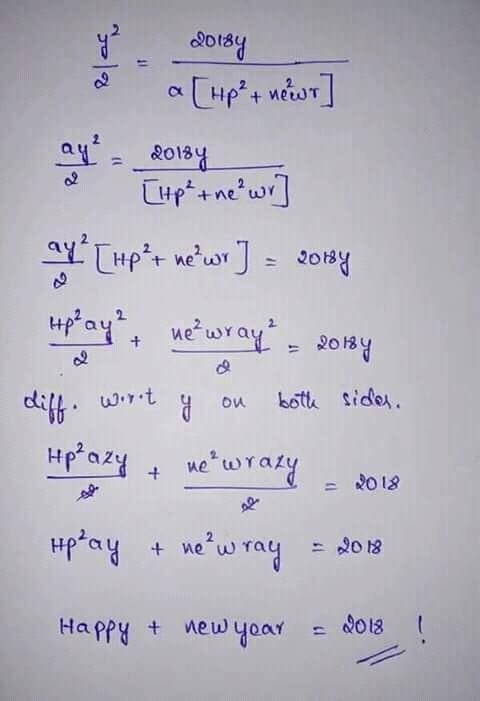 y²/2 = 2018y / a[Hp² + ne²wr]
ay²/2 = 2018y / [Hp² + ne²wr]
ay²/2 [Hp² + ne²wr] = 2018y
Hp²ay²/2 + ne²wray²/2 = 2018y
diff. w.r.t y on both sides.
Hp²a2y/2 + ne²wra2y/2 = 2018
Hp²ay + ne²wray = 2018
Happy + newyear = 2018 !